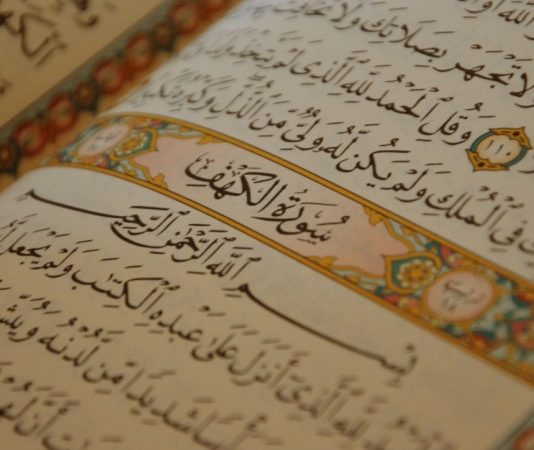 وَلَا تَجْهَرْ بِصَلَاتِكَ وَلَا تُخَافِتْ
وَقُلِ الْحَمْدُ لِلَّهِ الَّذِى لَمْ يَتَّخِذْ وَلَدًا
فِى الْمُلْكِ وَلَمْ يَكُن لَّهُ وَلِىٌّ مِّنَ الذُّلِّ وَكَبِّرْهُ تَكْبِيرًا
سُورَةُ الْكَهْفِ
بِسْمِ اللَّهِ الرَّحْمَٰنِ الرَّحِيمِ
لِلَّهِ الَّذِىٓ أَنزَلَ عَلَىٰ عَبْدِهِ الْكِتَٰبَ وَلَمْ يَجْعَل
بَأْسًا شَدِيدًا مِّن لَّدُنْهُ وَيُبَشِّرَ
أَنَّ لَهُمْ